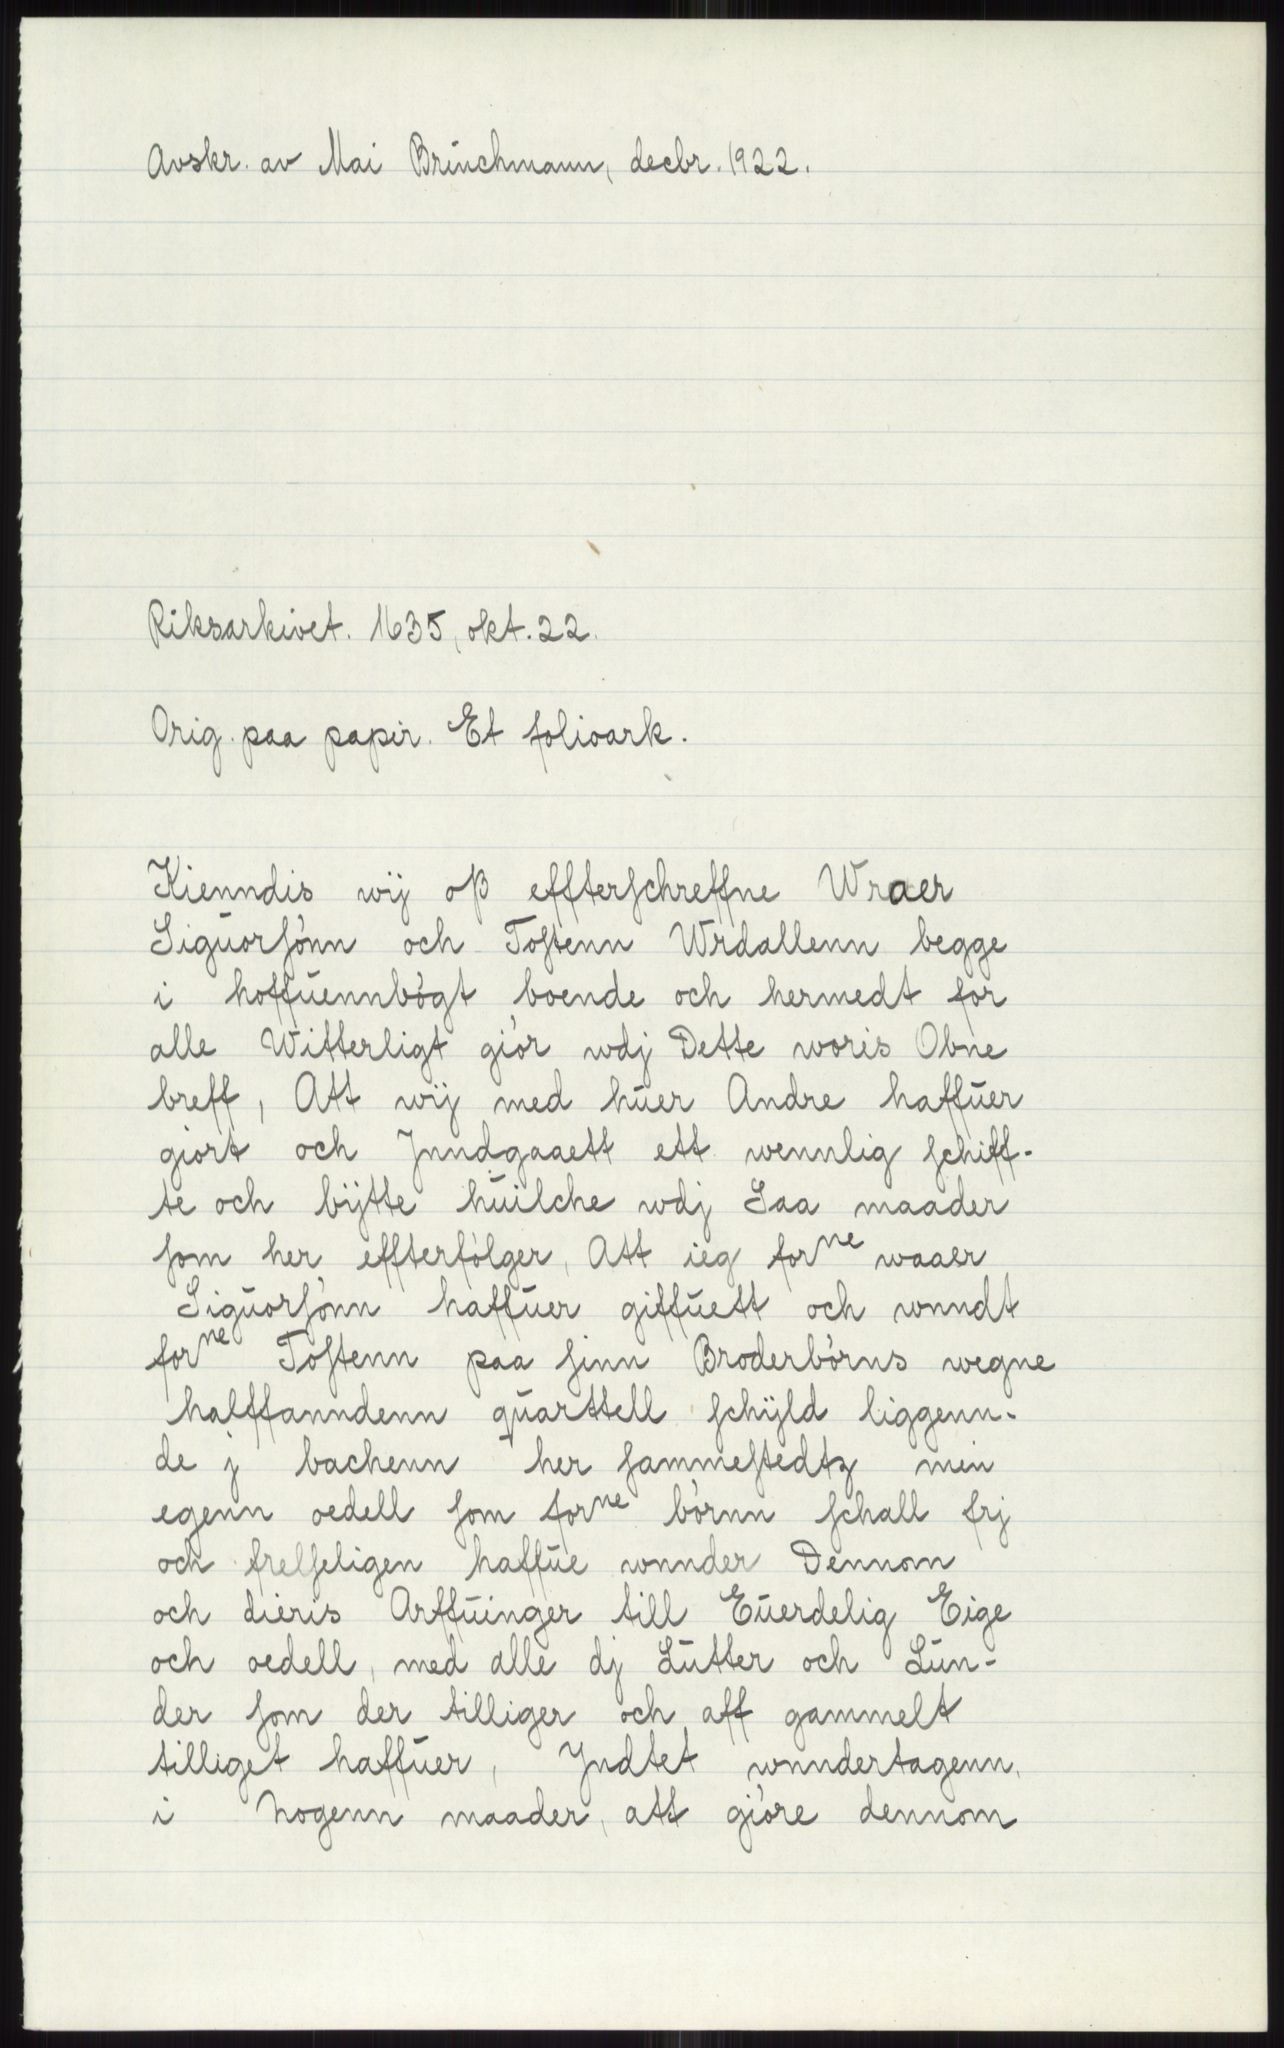 Avskr. av Mai Brünchmann, decbr. 1922.
Riksarkivet. 1635, okt. 22.
Orig. paa papir. Et folioark.
Kienndis wij oß effterſchreffne Wraer
Siguorſónn och Toſtenn Wrdallenn begge
i hoffuennbógt boende och hermedt for
alle Witterligt giór wdj Dette woris Obne
breff, Att wij med huer Andre haffuer
giort och Jnndgaaett ett wennlig ſchiff-
te och bÿtte huilche wdj Saa maader
ſom her effterfólger, Att ieg forne waaer
Siguorſónn haffuer giffuett och wnndt
forne Toſtenn paa ſinn Broderbórns wegne
halffanndenn quarttell ſchÿld liggenn-
de j bachenn her ſammeſtedtz min
egenn oedell ſom forne bórnn ſchall frj
och frelſeligen haffue wnnder Dennom
och dieris Arffuinger till Euerdelig Eige
och oedell, med alle dj Lutter och Lun-
der ſom der tilliger och aff gammelt
tilliget haffuer, Jndtet wnndertagenn,
i nogenn maader, att gióre dennom